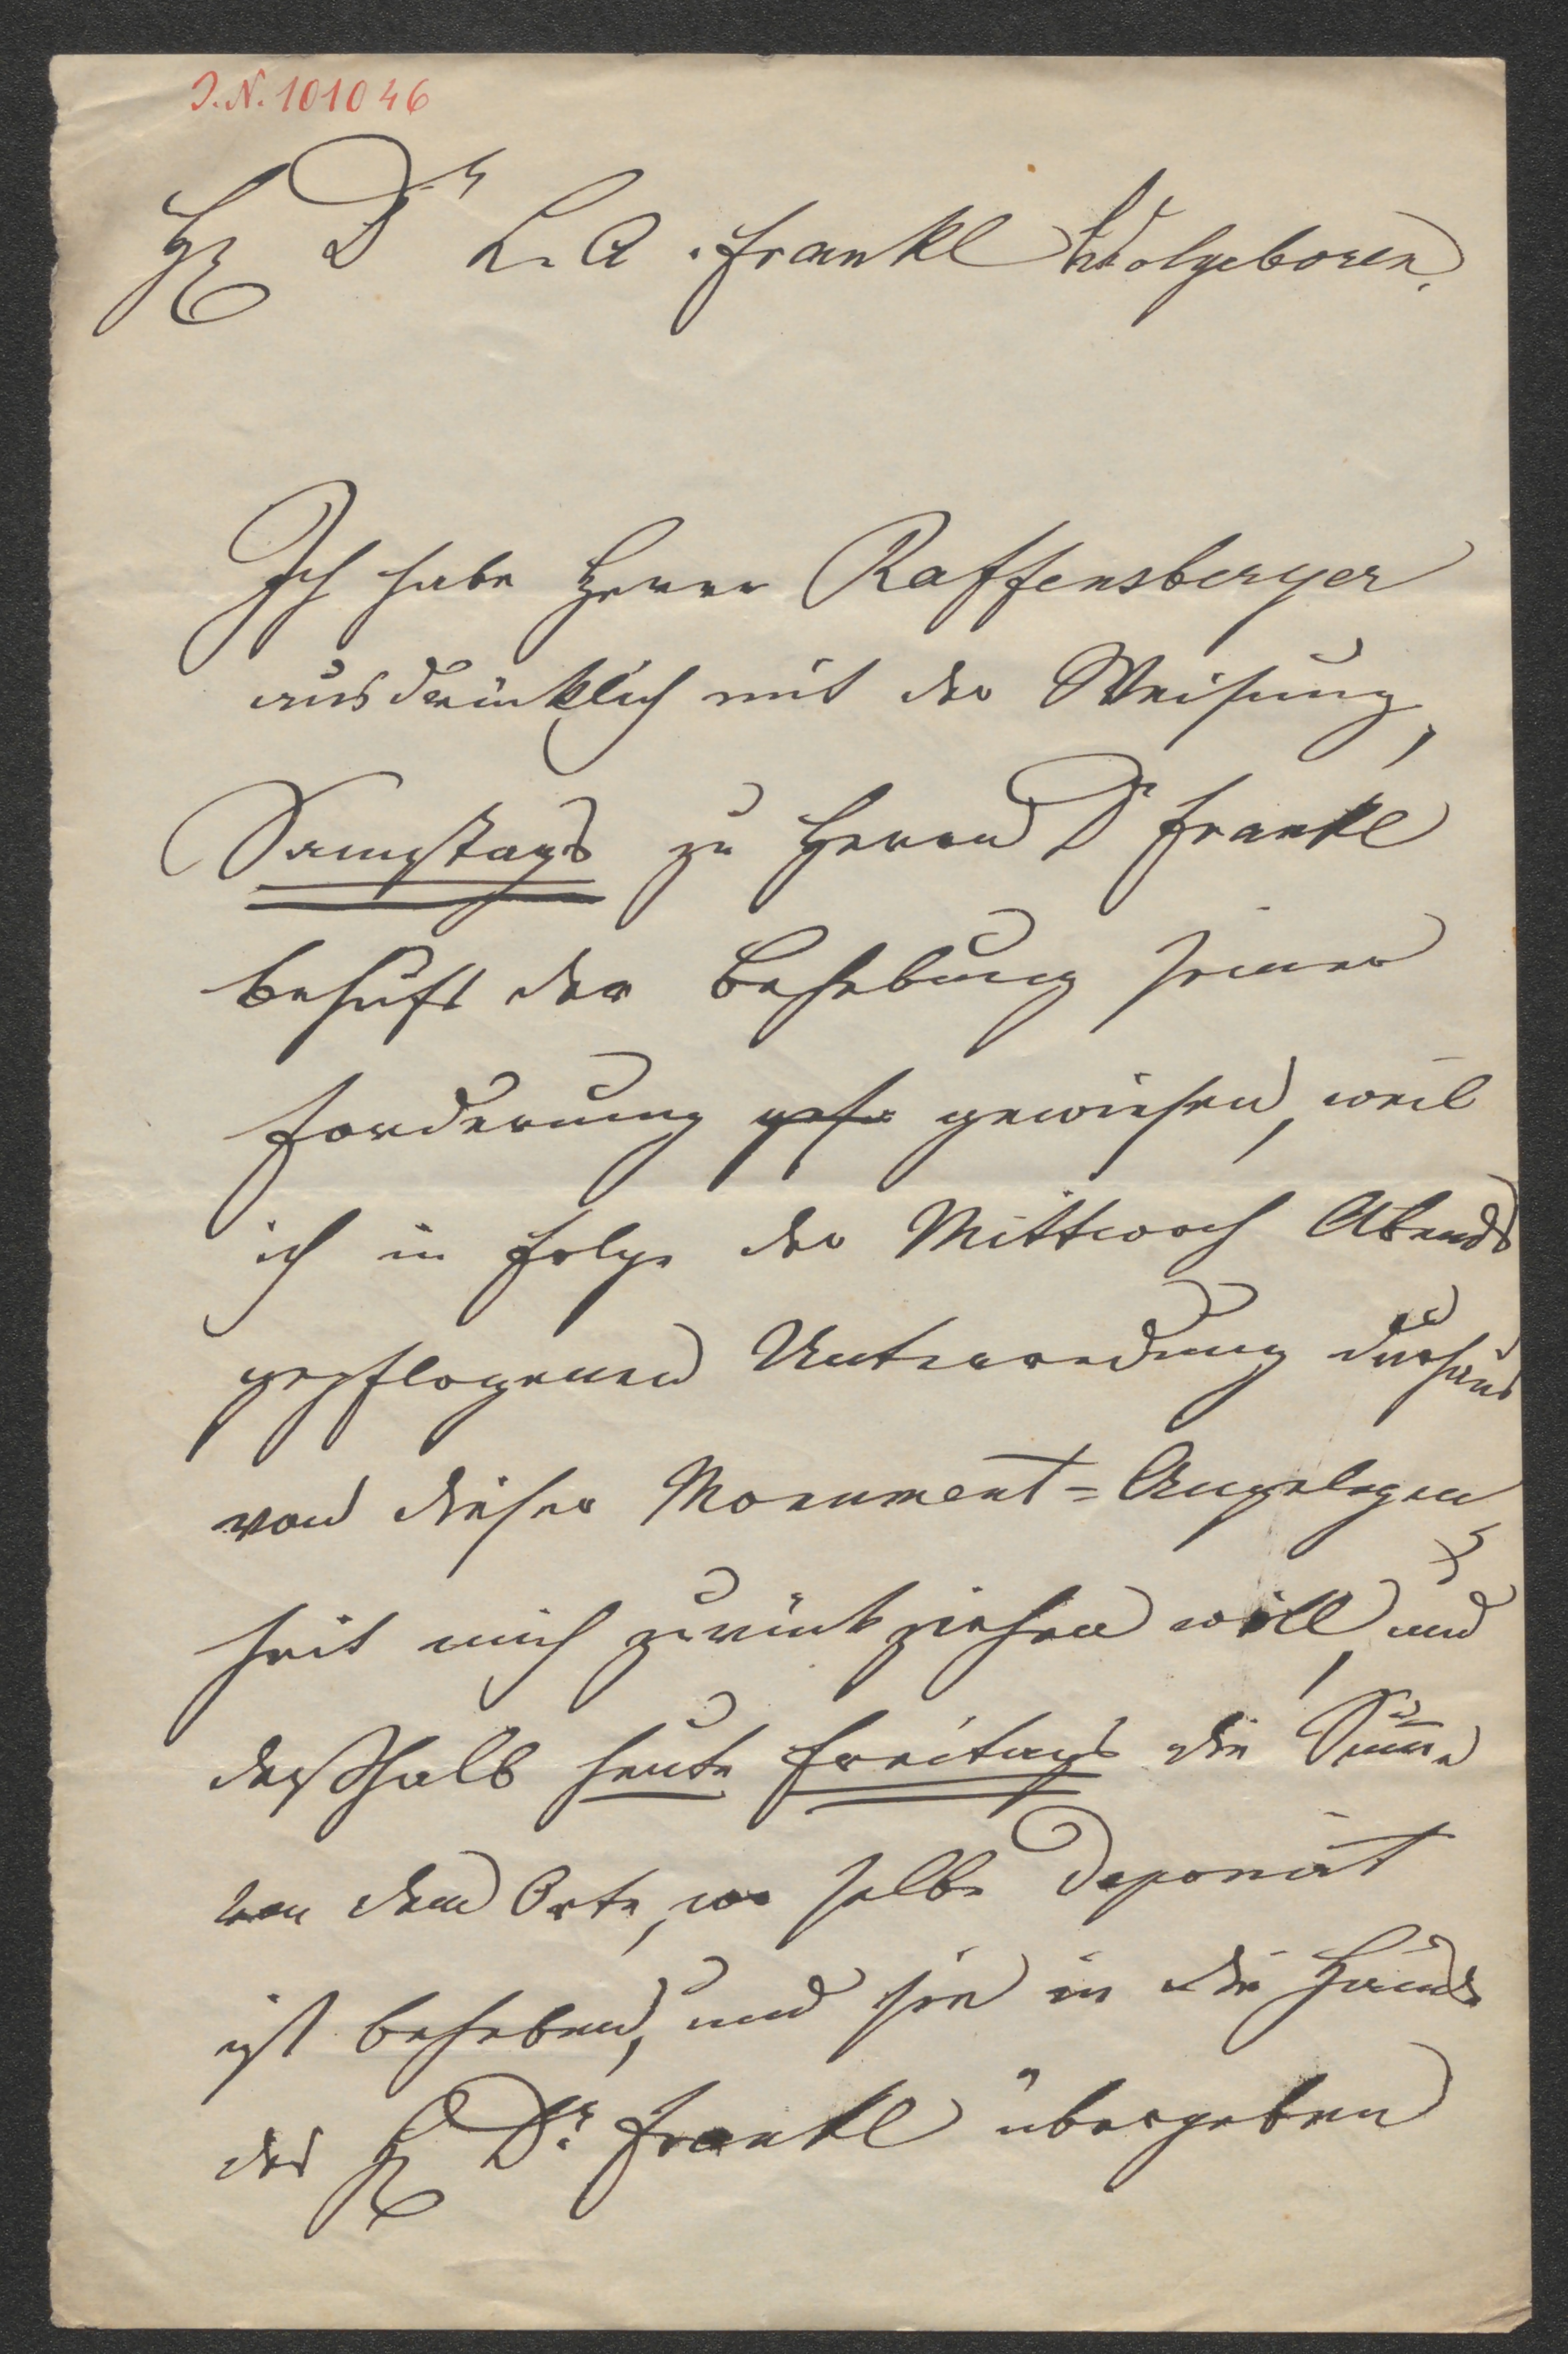 J.N. 101046
H Dr L. A. Frankl Wolgeboren.
Ich habe Herrn Raffensberger
ausdrücklich mit der Weisung,
Samstags zu Herrn Dr Frankl
behufs der Behebung seiner
Forderung gewiesen, weil
ich in Folge der Mittwoch Abends
gepflogenen Unterredung durchaus
von dieser Monument=Angelegen
heit mich zurückziehen will, und
deßhalb heute Freitags die Sum̅e
von dem Orte, wo selbe deponirt
ist beheben, und sie in die Hände
des H Dr. Frankl übergeben